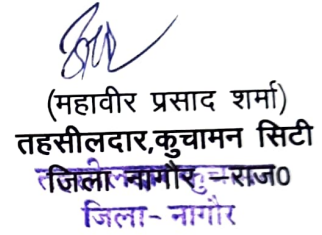 (महावीर प्रसाद शर्मा)
तहसीलदार,कुचामन सिटी
जिला नागौर –राज0
जिला- नागौर